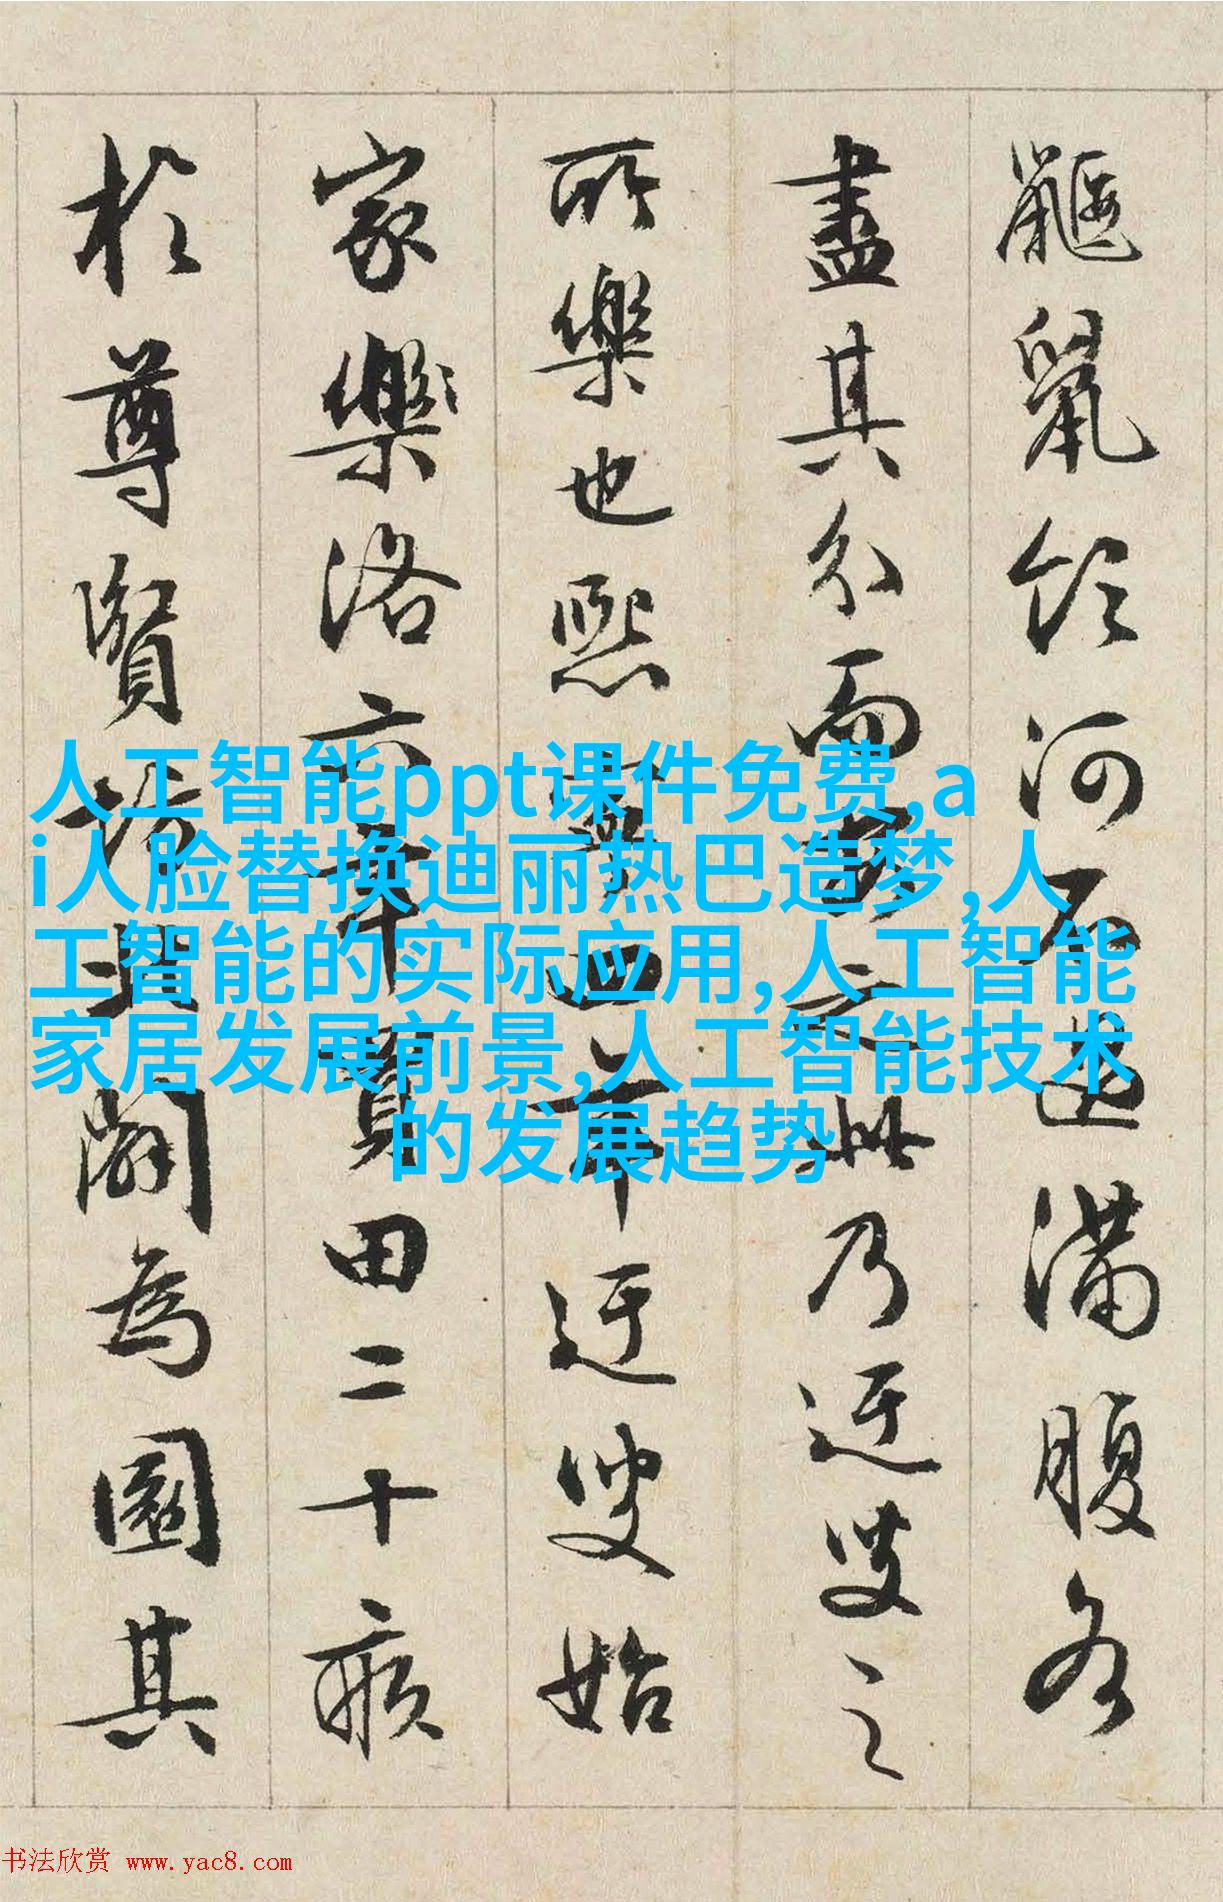 鼴鼠飲河不過滿腹各
盡其分而安之此乃迂叟之
所樂也熙寧四年迂叟始
家樂洛六年買田二十畝
於尊賢坊北闢為園其
人工智能ppt课件免费,a
i人脸替换迪丽热巴造梦,人
工智能的实际应用,人工智能
家居发展前景,人工智能技术
的发展趋势
书法欣赏 www.yac8.com